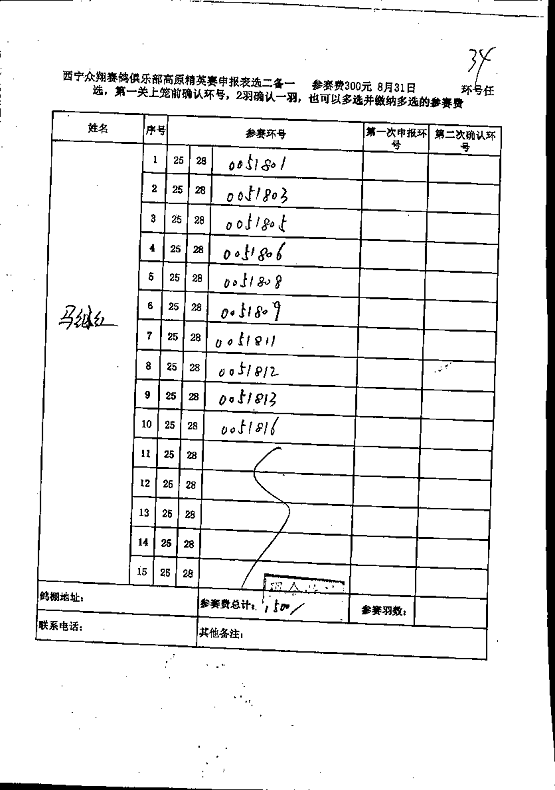 34
西宁众翔赛鸽俱乐部高原精英赛申报表选二备一 参赛费300元 8月31日 环号任
选，第一关上笼前确认环号，2羽确认一羽，也可以多选并缴纳多选的参赛费
姓名 序号 参赛环号 第一次申报环号 第二次确认环号
马继红
1 25 28 0051801
2 25 28 0051803
3 25 28 0051805
4 25 28 0051806
5 25 28 0051808
6 25 28 0051809
7 25 28 0051811
8 25 28 0051812
9 25 28 0051813
10 25 28 0051816
11 25 28
12 25 28
13 25 28
14 25 28
15 25 28
鸽棚地址： 参赛费总计：1500/ 参赛羽数：
联系电话： 其他备注：